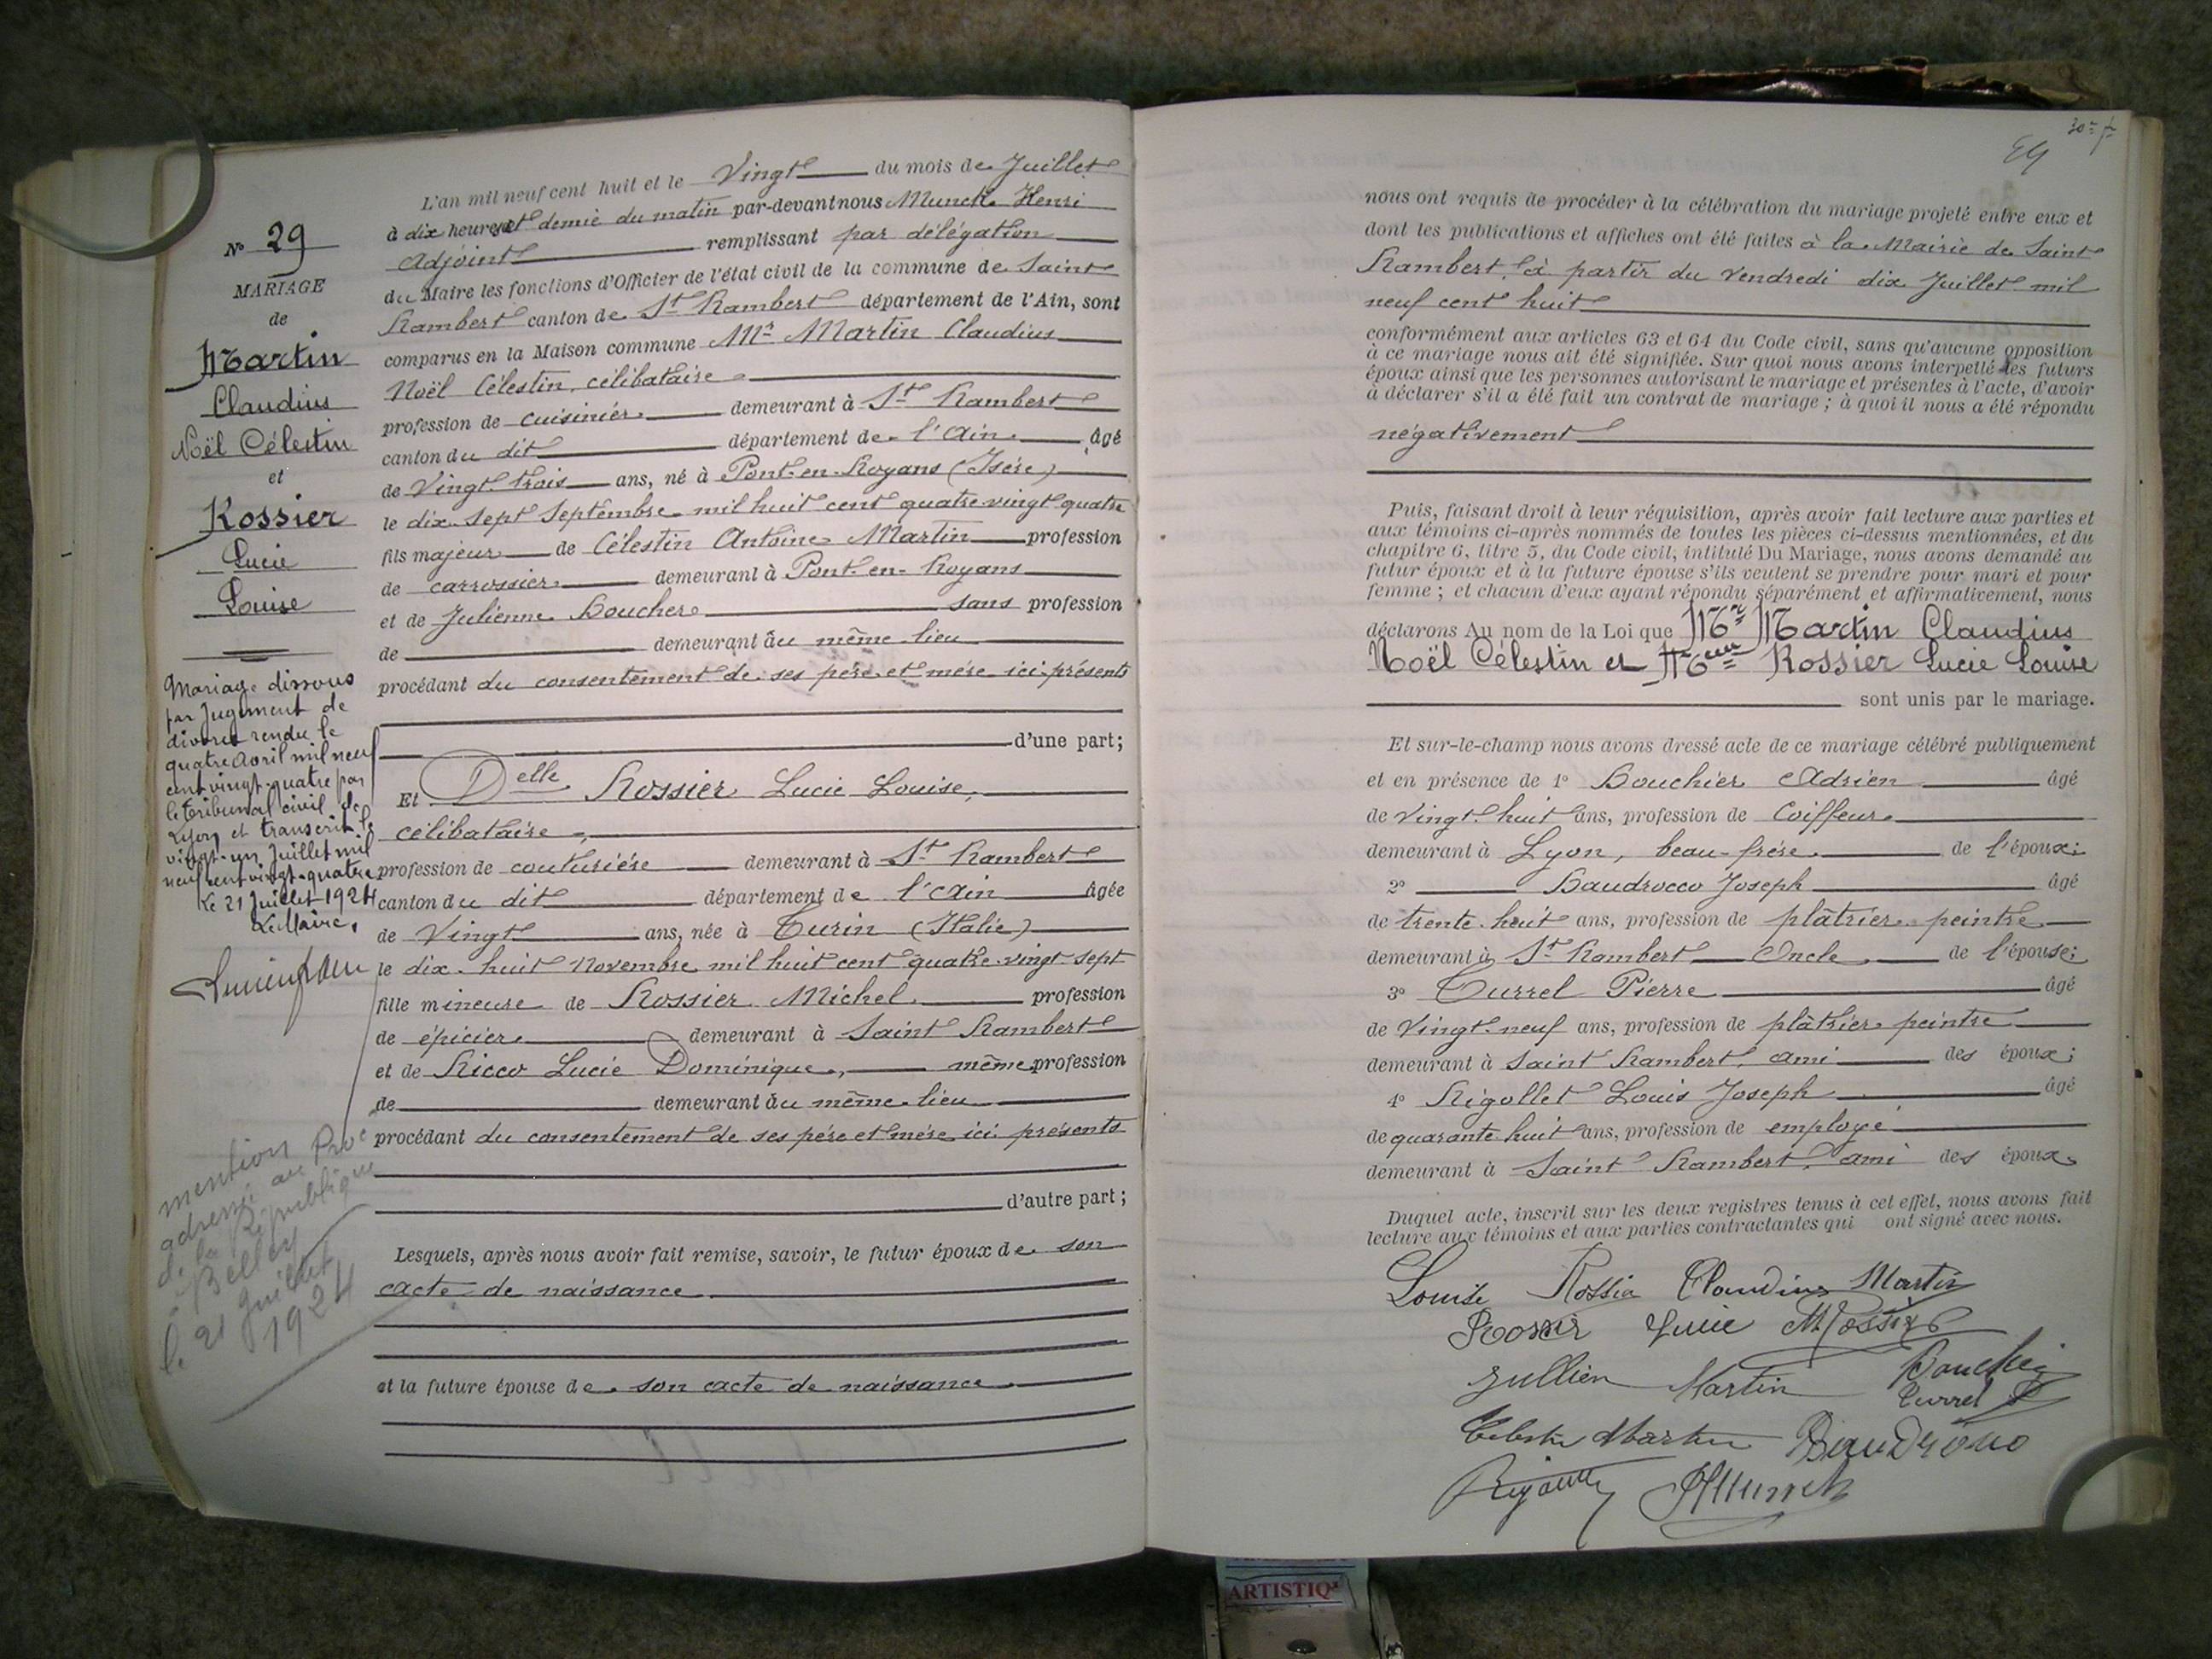 N° 29
MARIAGE
de
Martin
Claudius
Noël Célestin
et
Rossier
Lucie
Louise
Mariage dissous
par Jugement de
divorce rendu le
quatre Avril mil neuf
cent vingt-quatre par
le Tribunal civil de
Lyon et transcrit le
vingt-un Juillet mil
neuf cent vingt-quatre
Le 21 Juillet 1924
Le Maire,
mention
adressé au Proc
de la République
à Belley
le 21 Juillet
1924
L'an mil neuf cent huit et le Vingt du mois de Juillet
à dix heures et demie du matin par-devant nous Munck Henri
Adjoint remplissant par délégation
du Maire les fonctions d'Officier de l'état civil de la commune de Saint
Rambert canton de St Rambert département de l'Ain, sont
comparus en la Maison commune Mr Martin Claudius
Noël Célestin, célibataire
profession de cuisinier demeurant à St Rambert
canton du dit département de l'Ain âgé
de Vingt-trois ans, né à Pont-en-Royans (Isère)
le dix-sept Septembre mil huit cent quatre-vingt quatre
fils majeur de Célestin Antoine Martin profession
de carrossier demeurant à Pont-en-Royans
et de Julienne Boucher sans profession
de demeurant au même lieu
procédant du consentement de ses père et mère ici présents
d'une part;
Et Delle Rossier Lucie Louise,
célibataire,
profession de couturière demeurant à St Rambert
canton du dit département de l'Ain âgée
de Vingt ans, née à Turin (Italie)
le dix-huit Novembre mil huit cent quatre-vingt sept
fille mineure de Rossier Michel profession
de épicier demeurant à Saint Rambert
et de Ricco Lucie Dominique, même profession
de demeurant au même lieu
procédant du consentement de ses père et mère ici présents
d'autre part;
Lesquels, après nous avoir fait remise, savoir, le futur époux de son
acte de naissance
et la future épouse de son acte de naissance
30
nous ont requis de procéder à la célébration du mariage projeté entre eux et
dont les publications et affiches ont été faites à la Mairie de Saint
Rambert, à partir du Vendredi dix Juillet mil
neuf cent huit
conformément aux articles 63 et 64 du Code civil, sans qu'aucune opposition
à ce mariage nous ait été signifiée. Sur quoi nous avons interpellé les futurs
époux ainsi que les personnes autorisant le mariage et présentes à l'acte, d'avoir
à déclarer s'il a été fait un contrat de mariage; à quoi il nous a été répondu
négativement
Puis, faisant droit à leur réquisition, après avoir fait lecture aux parties et
aux témoins ci-après nommés de toutes les pièces ci-dessus mentionnées, et du
chapitre 6, titre 5, du Code civil, intitulé Du Mariage, nous avons demandé au
futur époux et à la future épouse s'ils veulent se prendre pour mari et pour
femme; et chacun d'eux ayant répondu séparément et affirmativement, nous
déclarons Au nom de la Loi que Mr Martin Claudius
Noël Célestin et Melle Rossier Lucie Louise
sont unis par le mariage.
Et sur-le-champ nous avons dressé acte de ce mariage célébré publiquement
et en présence de 1° Bouchier Adrien âgé
de vingt-huit ans, profession de Coiffeur
demeurant à Lyon, beau-frère de l'époux;
2° Baudrocco Joseph âgé
de trente-huit ans, profession de plâtrier peintre
demeurant à St Rambert Oncle de l'épouse;
3° Turrel Pierre âgé
de Vingt-neuf ans, profession de plâtrier peintre
demeurant à Saint Rambert, ami des époux;
4° Rigollet Louis Joseph âgé
de quarante huit ans, profession de employé
demeurant à Saint Rambert, ami des époux
Duquel acte, inscrit sur les deux registres tenus à cet effet, nous avons fait
lecture aux témoins et aux parties contractantes qui ont signé avec nous.
Louise Rossier Claudius Martin
Lucie M Rossier
Jullien Martin Bouchier
Turrel P
Celestin Martin Baudrocco
HMunck
ARTISTIQ